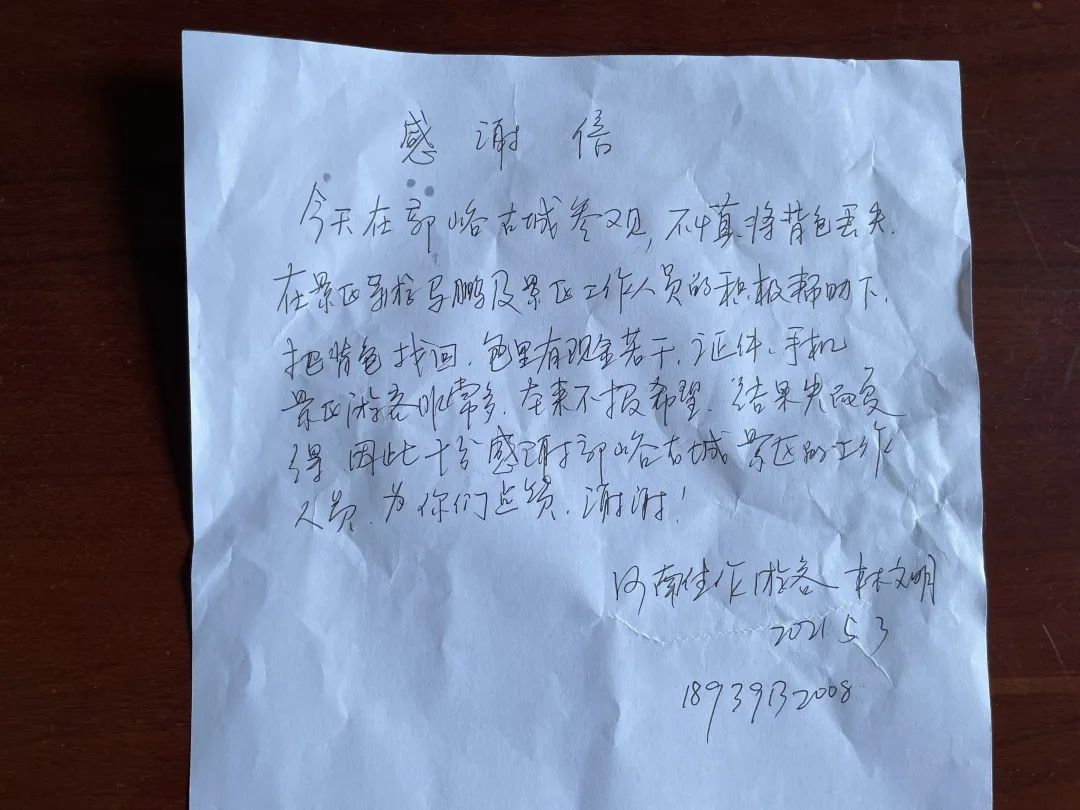 感谢信
今天在郭峪古城参观,不慎将背包丢失.
在景区导控马鹏及景区工作人员的积极帮助下.
把背包找回.包里有现金若干.证件、手机
景区游客非常多.本来不报希望.结果失而复
得 因此十分感谢郭峪古城景区的工作
人员.为你们点赞.谢谢!
河南焦作游客 林文明
2021.5.3
18939132008